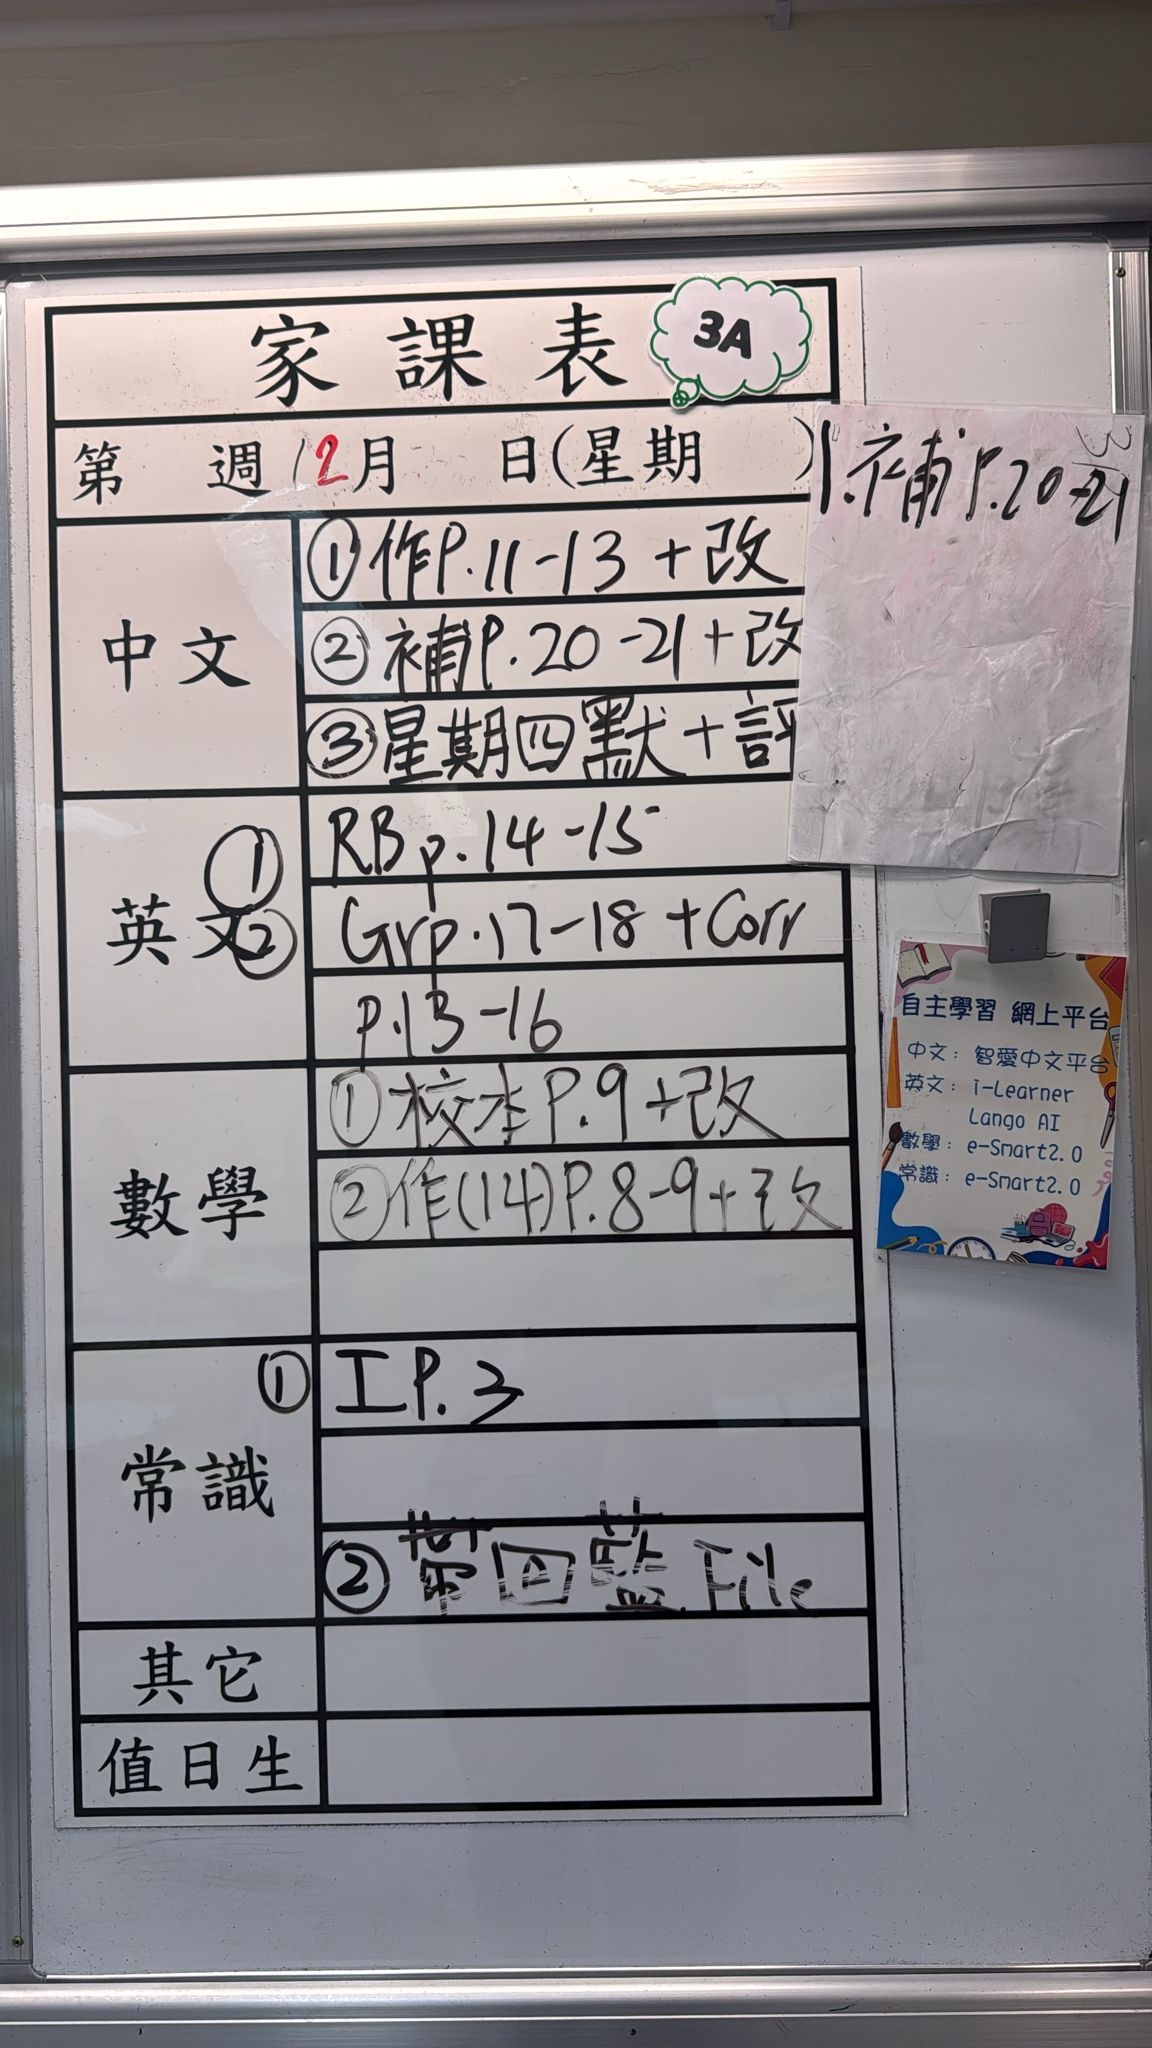 家課表
3A
第 週 12月 日(星期 )
中文
①作P.11-13+改
②補P.20-21+改
③星期四默+評
英文
① RB p.14-15
② Gr p.17-18+Corr
p.13-16
數學
①校本P.9+改
②作(14)P.8-9+改
常識
① 工P.3
②帶回藍File
其它
值日生
1.補P.20-21
自主學習 網上平台
中文：智愛中文平台
英文：i-Learner
Lango AI
數學：e-Smart2.0
常識：e-Smart2.0